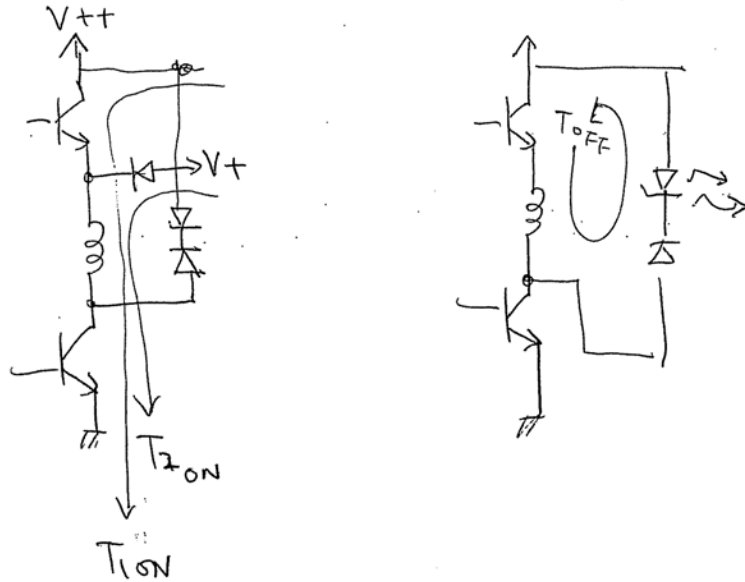 V++
V+
T2 ON
T1 ON
TOFF